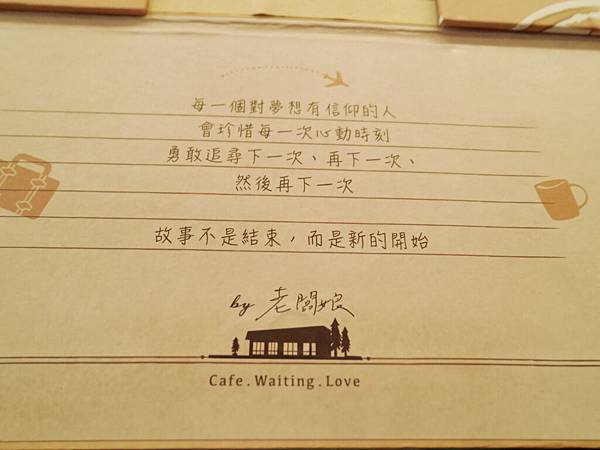 每一個對夢想有信仰的人
會珍惜每一次心動時刻
勇敢追尋下一次、再下一次、
然後再下一次
故事不是結束，而是新的開始
by 老闆娘
Cafe . Waiting . Love